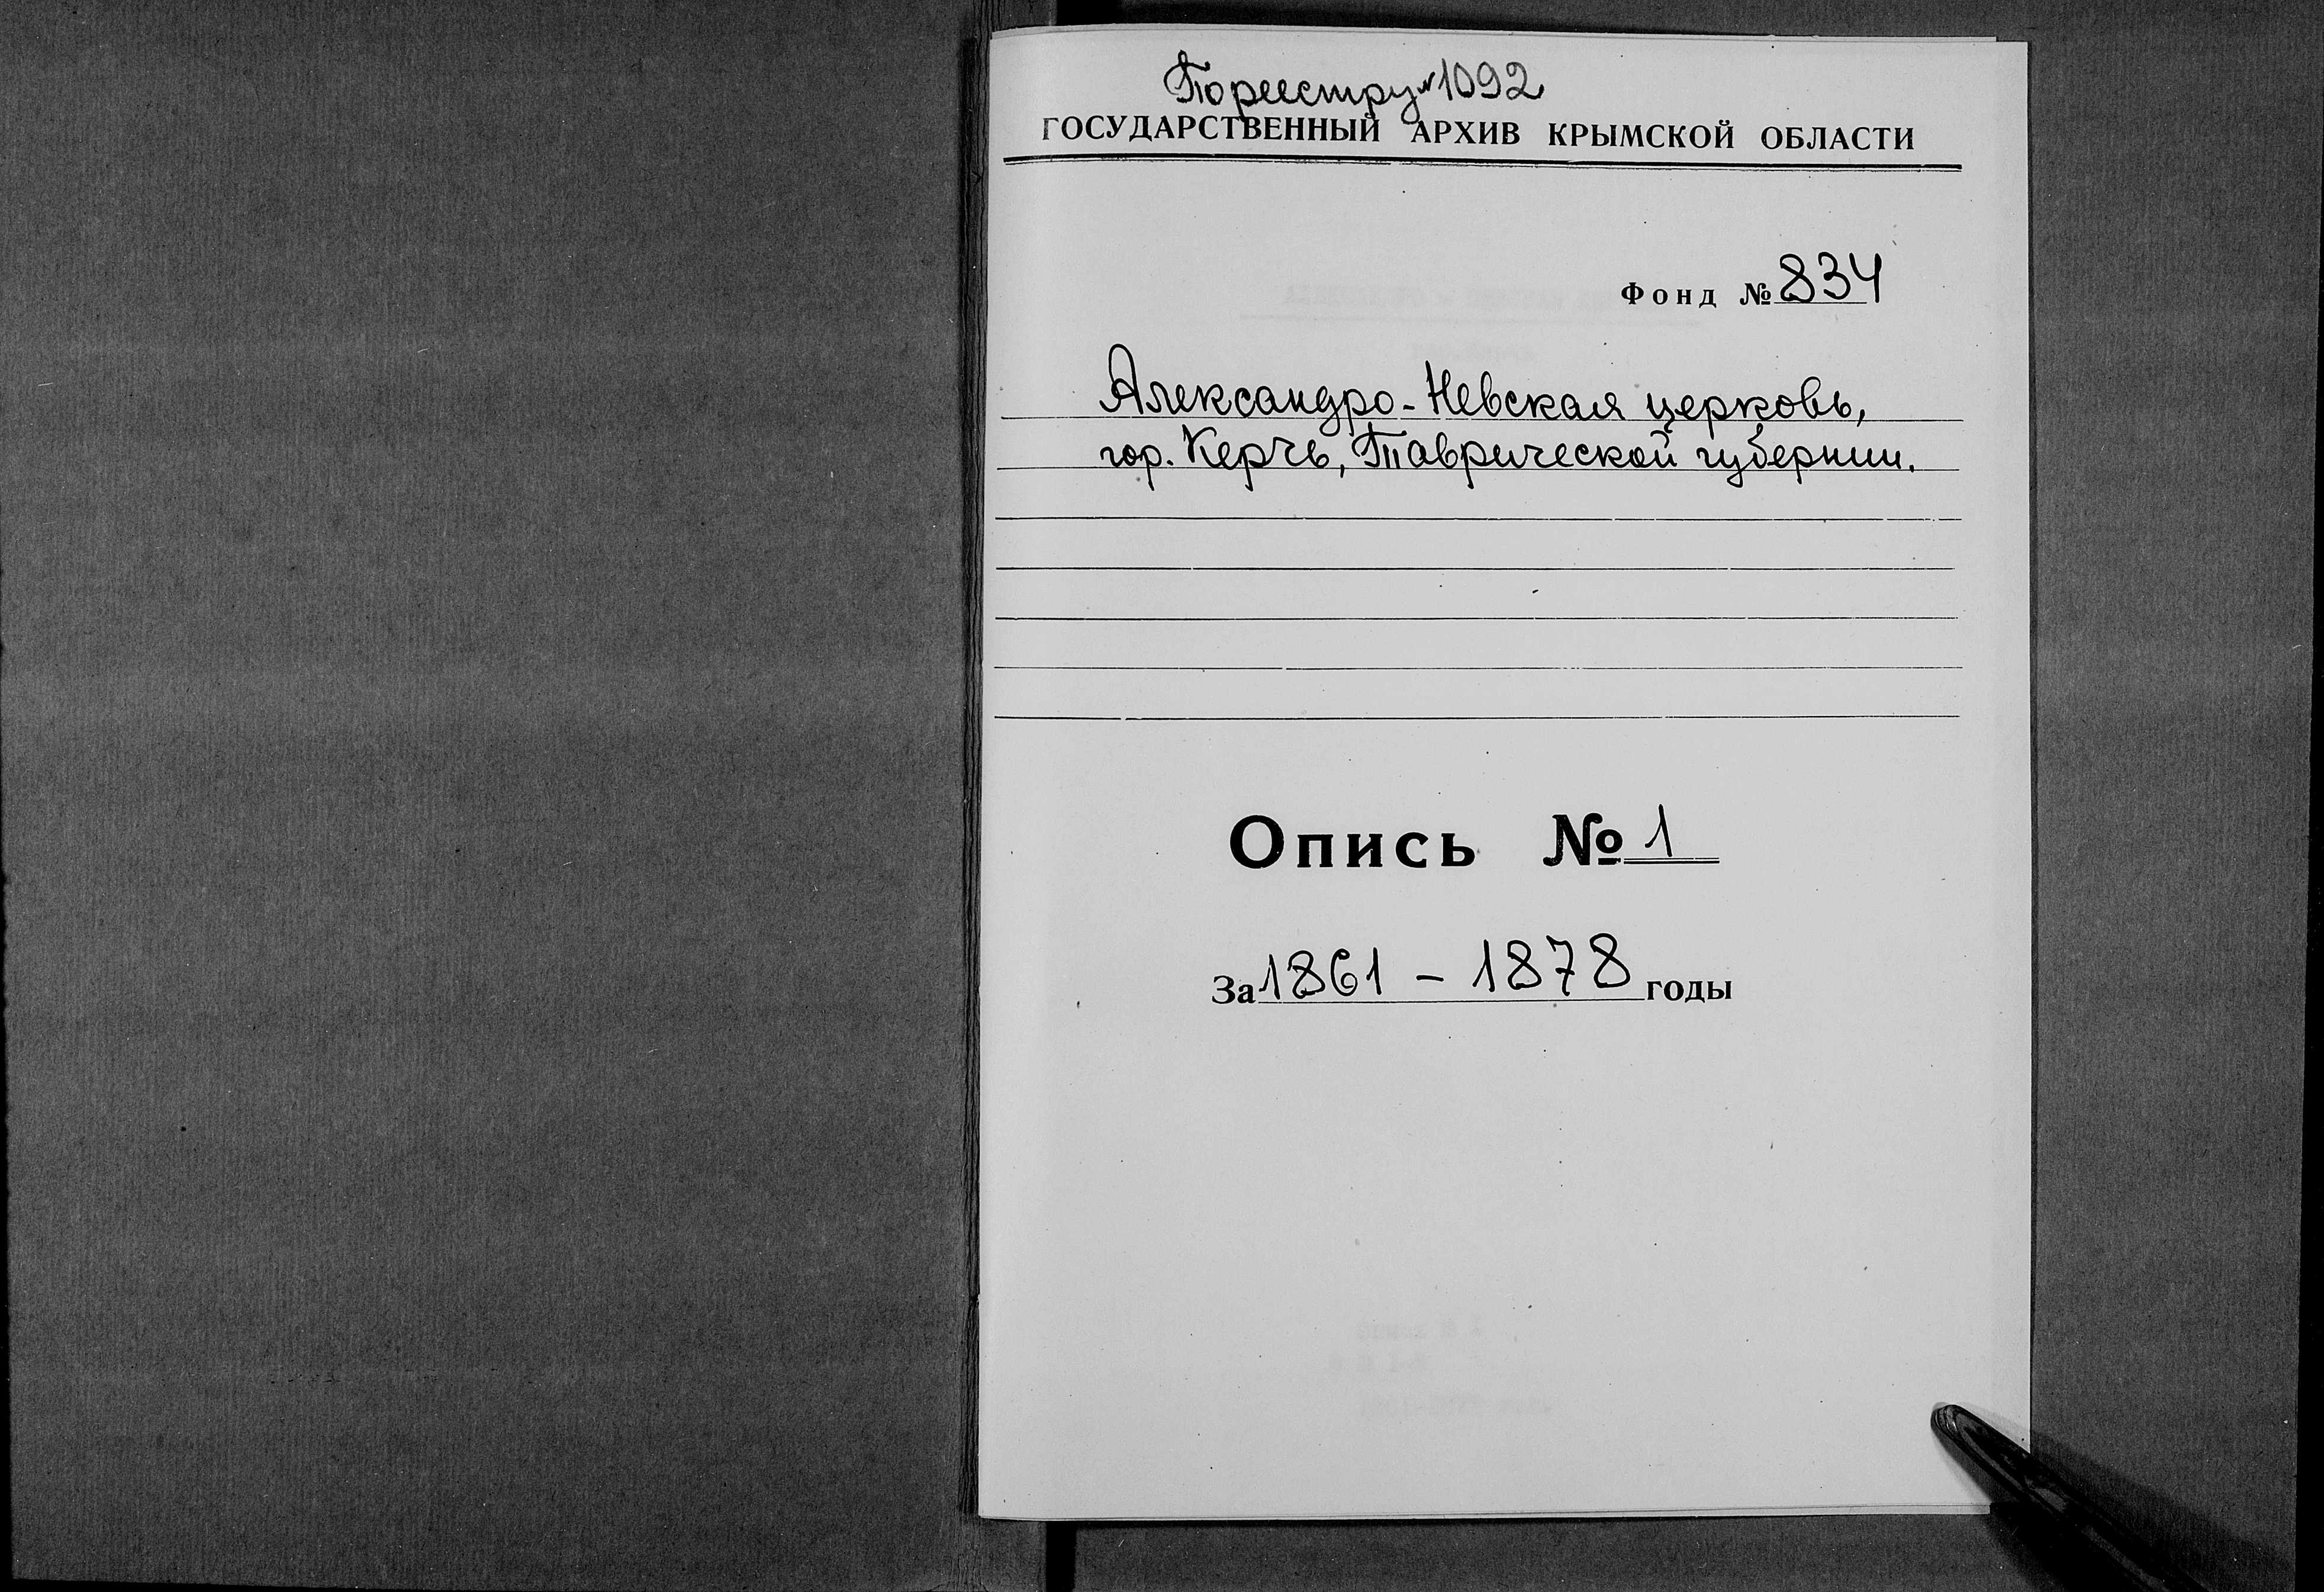 По реестру № 1092
ГОСУДАРСТВЕННЫЙ АРХИВ КРЫМСКОЙ ОБЛАСТИ
Фонд № 834
Александро-Невская церковь,
гор. Керчь, Таврической губернии.
Опись № 1
За 1861 – 1878 годы